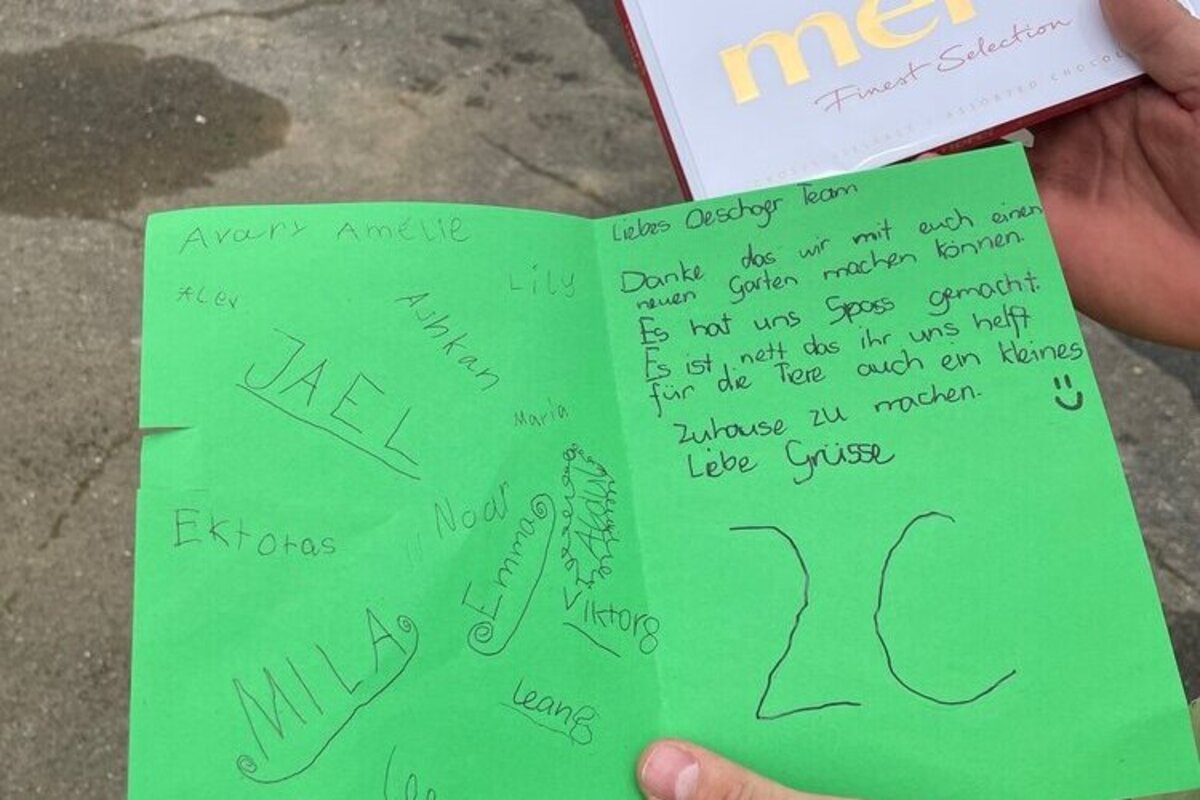 mer
Finest Selection
Liebes Oeschger Team
Danke das wir mit euch einen
neuen Garten machen können.
Es hat uns Spass gemacht.
Es ist nett das ihr uns helft
für die Tiere auch ein kleines
Zuhause zu machen.
Liebe Grüsse
2C
Avary Amélie
Lily
Ashkan
JAEL
Maria
Noar
Ektoras
Emma
Viktorg
MILA
leang